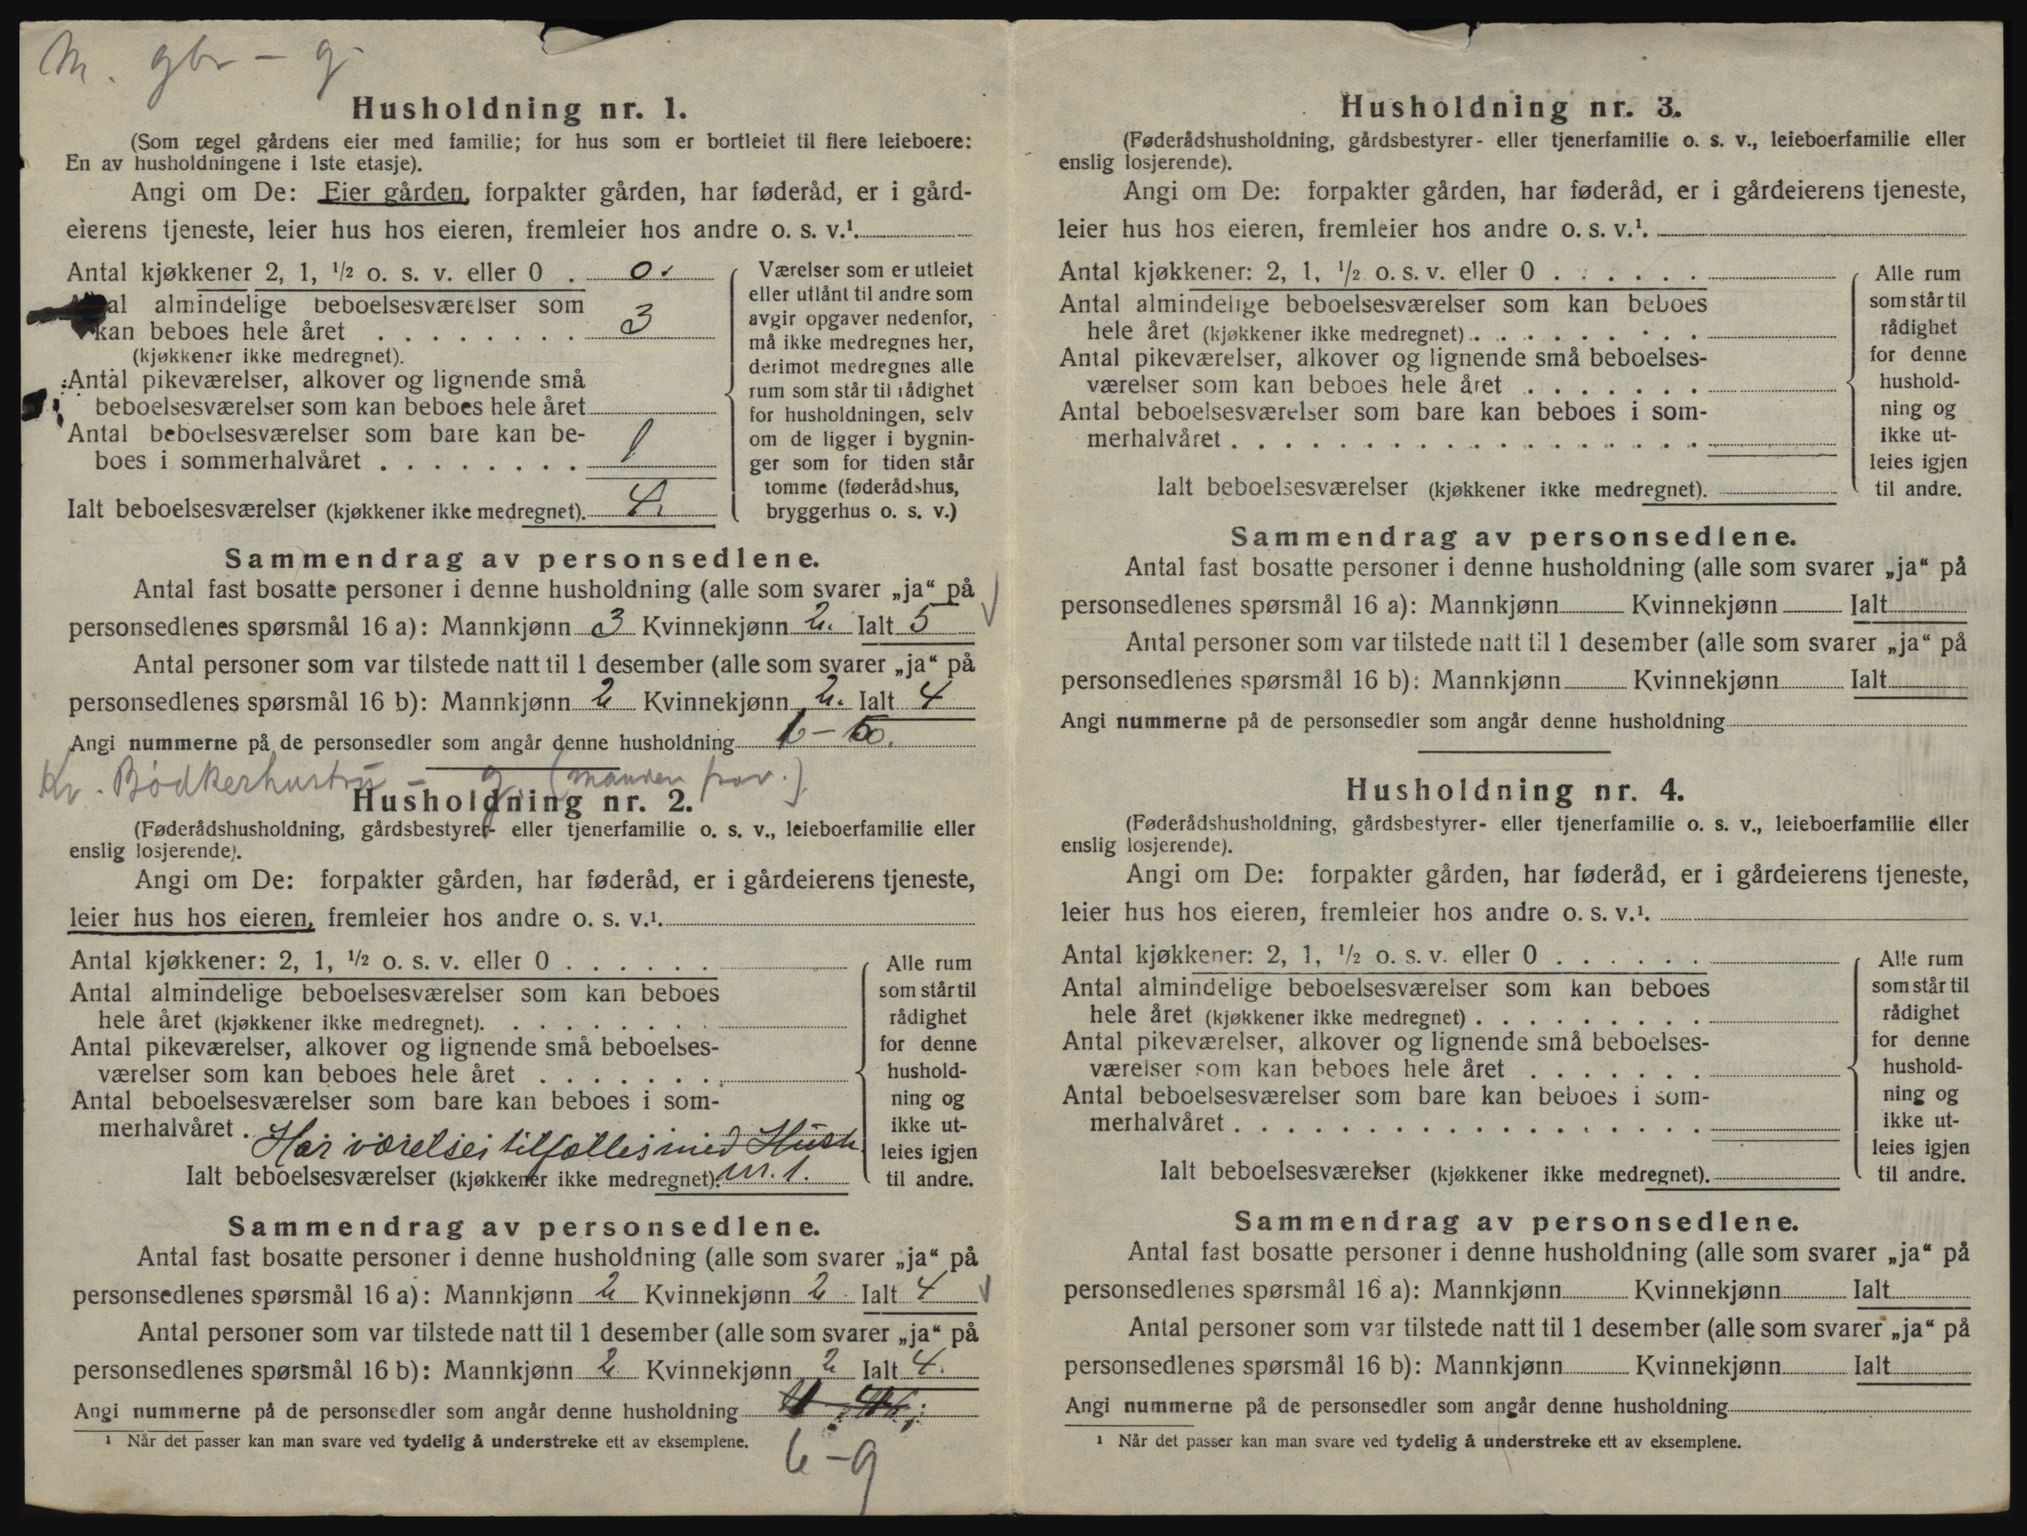 M. gbr - g.
Husholdning nr. 1.
(Som regel gårdens eier med familie; for hus som er bortleiet til flere leieboere:
En av husholdningene i 1ste etasje).
Angi om De: Eier gården, forpakter gården, har føderåd, er i gård-
eierens tjeneste, leier hus hos eieren, fremleier hos andre o. s. v.¹.
Antal kjøkkener 2, 1, ½ o. s. v. eller 0 . 0.
al almindelige beboelsesværelser som
kan beboes hele året . . . . . . . . 3
(kjøkkener ikke medregnet).
Antal pikeværelser, alkover og lignende små
beboelsesværelser som kan beboes hele året
Antal beboelsesværelser som bare kan be-
boes i sommerhalvåret . . . . . . . . 1
Ialt beboelsesværelser (kjøkkener ikke medregnet). 4.
Værelser som er utleiet
eller utlånt til andre som
avgir opgaver nedenfor,
må ikke medregnes her,
derimot medregnes alle
rum som står til rådighet
for husholdningen, selv
om de ligger i bygnin-
ger som for tiden står
tomme (føderådshus,
bryggerhus o. s. v.)
Sammendrag av personsedlene.
Antal fast bosatte personer i denne husholdning (alle som svarer „ja“ på
personsedlenes spørsmål 16 a): Mannkjønn 3 Kvinnekjønn 2. Ialt 5
Antal personer som var tilstede natt til 1 desember (alle som svarer „ja“ på
personsedlenes spørsmål 16 b): Mannkjønn 2 Kvinnekjønn 2. Ialt 4
Angi nummerne på de personsedler som angår denne husholdning 1-5.
Kv. Bødkerhustru - g. (manden frav.)
Husholdning nr. 2.
(Føderådshusholdning, gårdsbestyrer- eller tjenerfamilie o. s. v., leieboerfamilie eller
enslig losjerende).
Angi om De: forpakter gården, har føderåd, er i gårdeierens tjeneste,
leier hus hos eieren, fremleier hos andre o. s. v.¹.
Antal kjøkkener: 2, 1, ½ o. s. v. eller 0 . . . . . .
Antal almindelige beboelsesværelser som kan beboes
hele året (kjøkkener ikke medregnet). . . . . . . . .
Antal pikeværelser, alkover og lignende små beboelses-
værelser som kan beboes hele året . . . . . . .
Antal beboelsesværelser som bare kan beboes i som-
merhalvåret . Har værelser tilfælles med Hush
Ialt beboelsesværelser (kjøkkener ikke medregnet). nr. 1.
Alle rum
som står til
rådighet
for denne
hushold-
ning og
ikke ut-
leies igjen
til andre.
Sammendrag av personsedlene.
Antal fast bosatte personer i denne husholdning (alle som svarer „ja“ på
personsedlenes spørsmål 16 a): Mannkjønn 2 Kvinnekjønn 2 Ialt 4
Antal personer som var tilstede natt til 1 desember (alle som svarer „ja“ på
personsedlenes spørsmål 16 b): Mannkjønn 2. Kvinnekjønn 2 Ialt 4.
Angi nummerne på de personsedler som angår denne husholdning
¹ Når det passer kan man svare ved tydelig å understreke ett av eksemplene.
6-9
Husholdning nr. 3.
(Føderådshusholdning, gårdsbestyrer- eller tjenerfamilie o. s. v., leieboerfamilie eller
enslig losjerende).
Angi om De: forpakter gården, har føderåd, er i gårdeierens tjeneste,
leier hus hos eieren, fremleier hos andre o. s. v.¹.
Antal kjøkkener: 2, 1, ½ o. s. v. eller 0 . . . . . .
Antal almindelige beboelsesværelser som kan beboes
hele året (kjøkkener ikke medregnet) . . . . . . . . .
Antal pikeværelser, alkover og lignende små beboelses-
værelser som kan beboes hele året . . . . . . .
Antal beboelsesværelser som bare kan beboes i som-
merhalvåret . . . . . . . . . . . . . . . . . .
Ialt beboelsesværelser (kjøkkener ikke medregnet).
Alle rum
som står til
rådighet
for denne
hushold-
ning og
ikke ut-
leies igjen
til andre.
Sammendrag av personsedlene.
Antal fast bosatte personer i denne husholdning (alle som svarer „ja“ på
personsedlenes spørsmål 16 a): Mannkjønn Kvinnekjønn Ialt
Antal personer som var tilstede natt til 1 desember (alle som svarer „ja“ på
personsedlenes spørsmål 16 b): Mannkjønn Kvinnekjønn Ialt
Angi nummerne på de personsedler som angår denne husholdning
Husholdning nr. 4.
(Føderådshusholdning, gårdsbestyrer- eller tjenerfamilie o. s. v., leieboerfamilie eller
enslig losjerende).
Angi om De: forpakter gården, har føderåd, er i gårdeierens tjeneste,
leier hus hos eieren, fremleier hos andre o. s. v.¹.
Antal kjøkkener: 2, 1, ½ o. s. v. eller 0 . . . . . .
Antal almindelige beboelsesværelser som kan beboes
hele året (kjøkkener ikke medregnet) . . . . . . . . .
Antal pikeværelser, alkover og lignende små beboelses-
værelser som kan beboes hele året . . . . . . .
Antal beboelsesværelser som bare kan beboes i som-
merhalvåret . . . . . . . . . . . . . . . . . .
Ialt beboelsesværelser (kjøkkener ikke medregnet).
Alle rum
som står til
rådighet
for denne
hushold-
ning og
ikke ut-
leies igjen
til andre.
Sammendrag av personsedlene.
Antal fast bosatte personer i denne husholdning (alle som svarer „ja“ på
personsedlenes spørsmål 16 a): Mannkjønn Kvinnekjønn Ialt
Antal personer som var tilstede natt til 1 desember (alle som svarer „ja“ på
personsedlenes spørsmål 16 b): Mannkjønn Kvinnekjønn Ialt
Angi nummerne på de personsedler som angår denne husholdning
¹ Når det passer kan man svare ved tydelig å understreke ett av eksemplene.